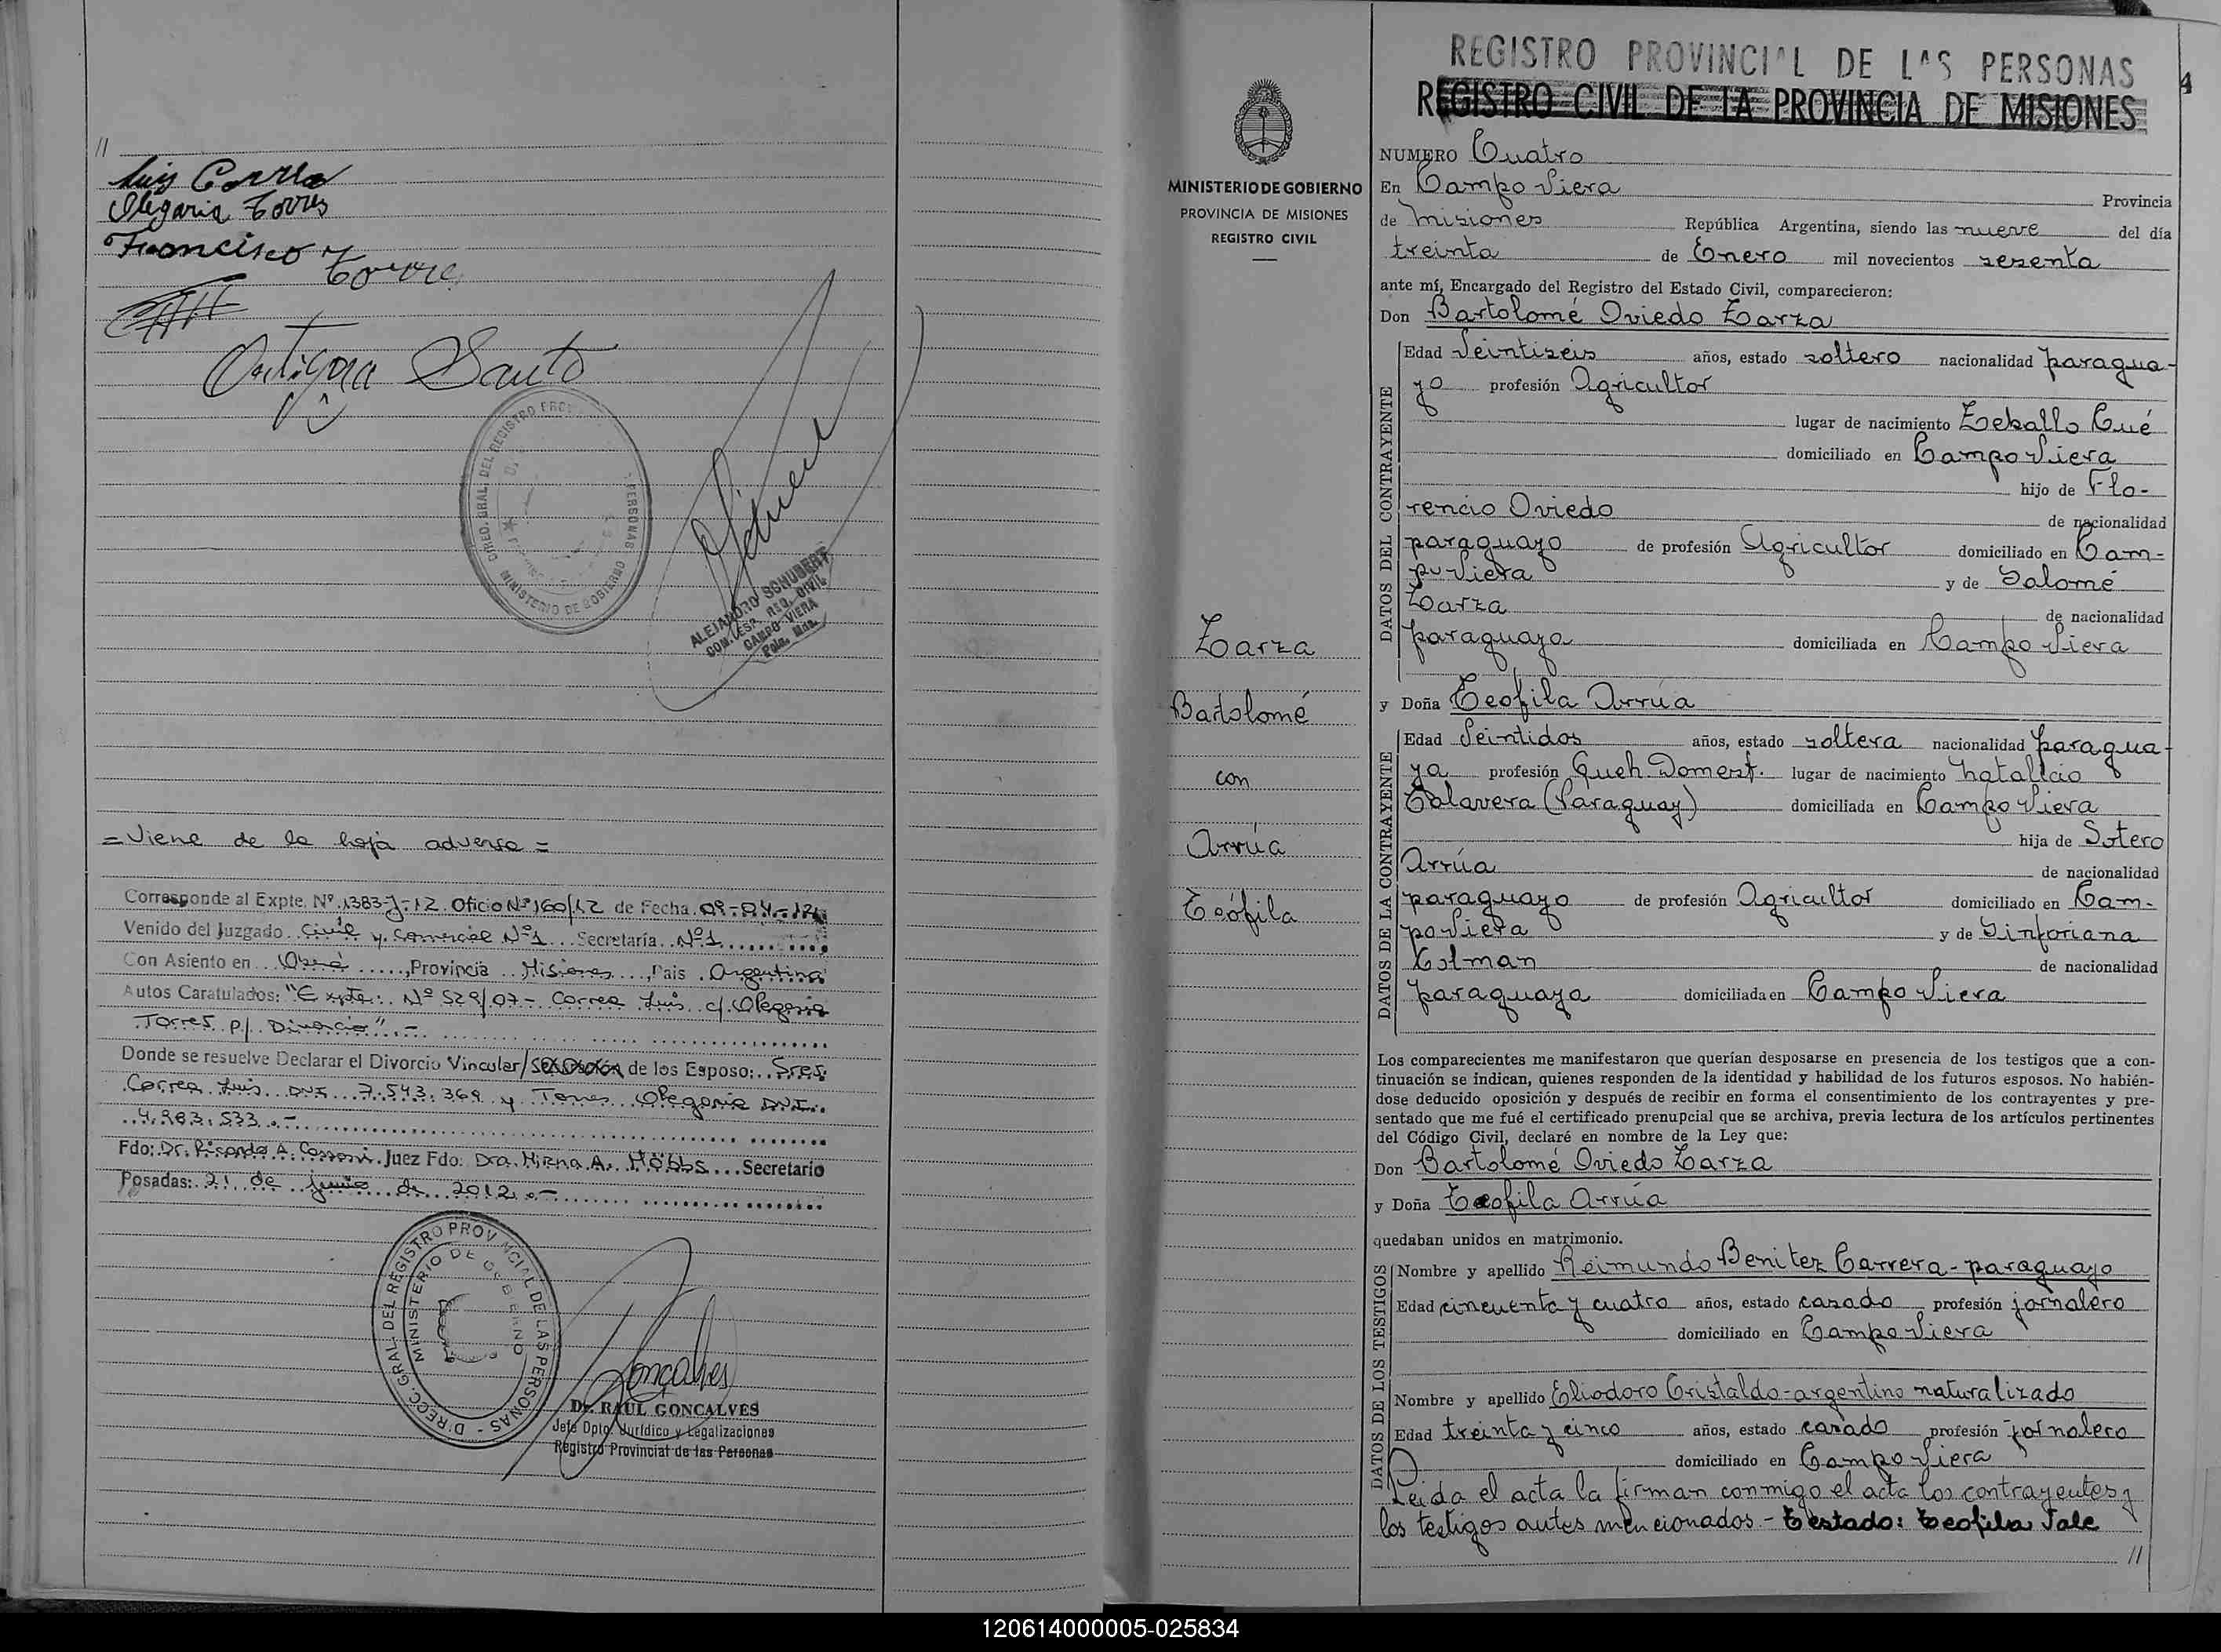 //
Luis Correa
Olegaria Torres
Francisco Torre
Ortigoza Santo
DIREC. GRAL. DEL REGISTRO PROV PERSONAS
MINISTERIO DE GOBIERNO
ALEJANDRO SCHUBERT
REG. CIVIL
CAMPO VIERA
= Viene de la hoja adversa =
Corresponde al Expte. Nº 1383-J-12 Oficio Nº 160/12 de Fecha 09-04-12
Venido del Juzgado Civil y Comercial Nº 1 Secretaría Nº 1
Con Asiento en Oberá, Provincia Misiones, Pais Argentina
Autos Caratulados: "Expte. Nº 529/07 - Correa Luis c/ Olegaria
Torres p/ Divorcio" . -
Donde se resuelve Declarar el Divorcio Vincular/ de los Esposo: Sres.
Correa Luis DNI 7.543.369 y Torres Olegaria DNI.
4.983.533 . -
Fdo: Dr. Ricardo A. Juez Fdo: Dra. Mirna A. Secretario
Posadas: 21 de junio de 2012 . -
DIREC. GRAL. DEL REGISTRO PROVINCIAL DE LAS PERSONAS
MINISTERIO DE GOBIERNO
Goncalves
Dr. RAUL GONCALVES
Jefe Dpto. Jurídico y Legalizaciones
Registro Provincial de las Personas
MINISTERIO DE GOBIERNO
PROVINCIA DE MISIONES
REGISTRO CIVIL
Zarza
Bartolomé
con
Arrúa
Teófila
REGISTRO PROVINCIAL DE LAS PERSONAS
4
REGISTRO CIVIL DE LA PROVINCIA DE MISIONES
NUMERO Cuatro
En Campo Viera Provincia
de Misiones República Argentina, siendo las nueve del día
treinta de Enero mil novecientos sesenta
ante mí, Encargado del Registro del Estado Civil, comparecieron:
Don Bartolomé Oviedo Zarza
DATOS DEL CONTRAYENTE
Edad Veintiseis años, estado soltero nacionalidad paragua-
yo profesión Agricultor
lugar de nacimiento Zeballo Cué
domiciliado en Campo Viera
hijo de Flo-
rencio Oviedo de nacionalidad
paraguayo de profesión Agricultor domiciliado en Cam-
po Viera y de Salomé
Zarza de nacionalidad
paraguaya domiciliada en Campo Viera
y Doña Teofila Arrúa
DATOS DE LA CONTRAYENTE
Edad Veintidos años, estado soltera nacionalidad paragua-
ya profesión Queh. Domest. lugar de nacimiento Natalicio
Talavera (Paraguay) domiciliada en Campo Viera
hija de Sotero
Arrúa de nacionalidad
paraguayo de profesión Agricultor domiciliado en Cam-
po Viera y de Sinforiana
Colman de nacionalidad
paraguaya domiciliada en Campo Viera
Los comparecientes me manifestaron que querían desposarse en presencia de los testigos que a con-
tinuación se indican, quienes responden de la identidad y habilidad de los futuros esposos. No habién-
dose deducido oposición y después de recibir en forma el consentimiento de los contrayentes y pre-
sentado que me fué el certificado prenupcial que se archiva, previa lectura de los artículos pertinentes
del Código Civil, declaré en nombre de la Ley que:
Don Bartolomé Oviedo Zarza
y Doña Teofila Arrúa
quedaban unidos en matrimonio.
DATOS DE LOS TESTIGOS
Nombre y apellido Reimundo Benitez Carrera - paraguayo
Edad cincuenta y cuatro años, estado casado profesión jornalero
domiciliado en Campo Viera
Nombre y apellido Eliodoro Cristaldo - argentino naturalizado
Edad treinta y cinco años, estado casado profesión jornalero
domiciliado en Campo Viera
Leida el acta la firman conmigo el acta los contrayentes y
los testigos antes mencionados - Testado: Teofila Vale
//
120614000005-025834